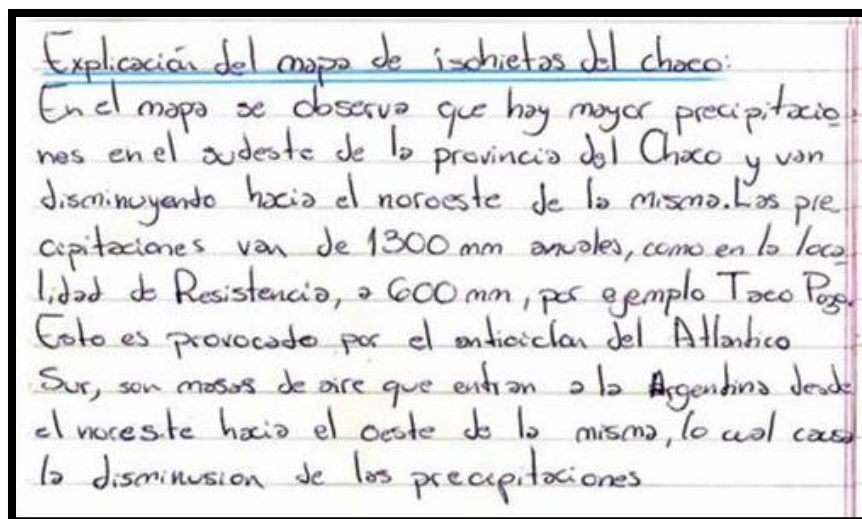 Explicación del mapa de isohietas del chaco:
En el mapa se observa que hay mayor precipitacio
nes en el sudeste de la provincia del Chaco y van
disminuyendo hacia el noroeste de la misma. Las pre
cipitaciones van de 1300 mm anuales, como en la loca
lidad de Resistencia, a 600 mm, por ejemplo Taco Pozo.
Esto es provocado por el anticiclon del Atlantico
Sur, son masas de aire que entran a la Argentina desde
el noreste hacia el oeste de la misma, lo cual causa
la disminusion de las precipitaciones